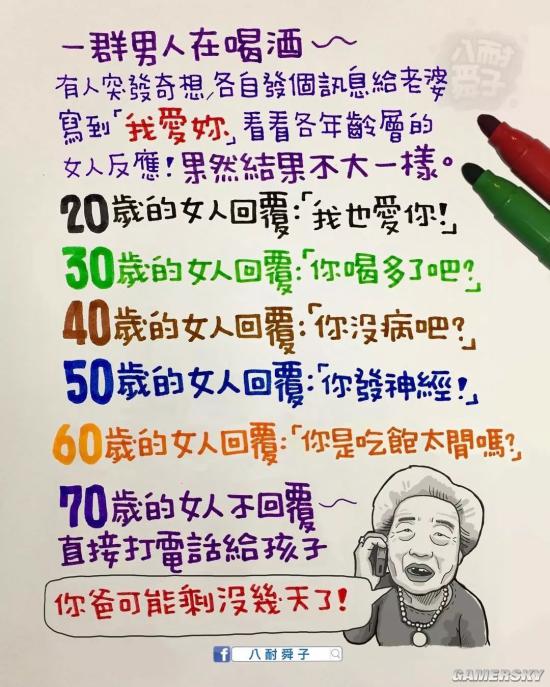 一群男人在喝酒～
八耐舜子
有人突發奇想,各自發個訊息給老婆
寫到「我愛妳」看看各年齡層的
女人反應!果然結果不大一樣。
20歲的女人回覆:「我也愛你!」
30歲的女人回覆:「你喝多了吧?」
40歲的女人回覆:「你沒病吧?」
50歲的女人回覆:「你發神經!」
60歲的女人回覆:「你是吃飽太閒嗎?」
70歲的女人不回覆～
直接打電話給孩子
你爸可能剩沒幾天了!
f 八耐舜子
GAMERSKY